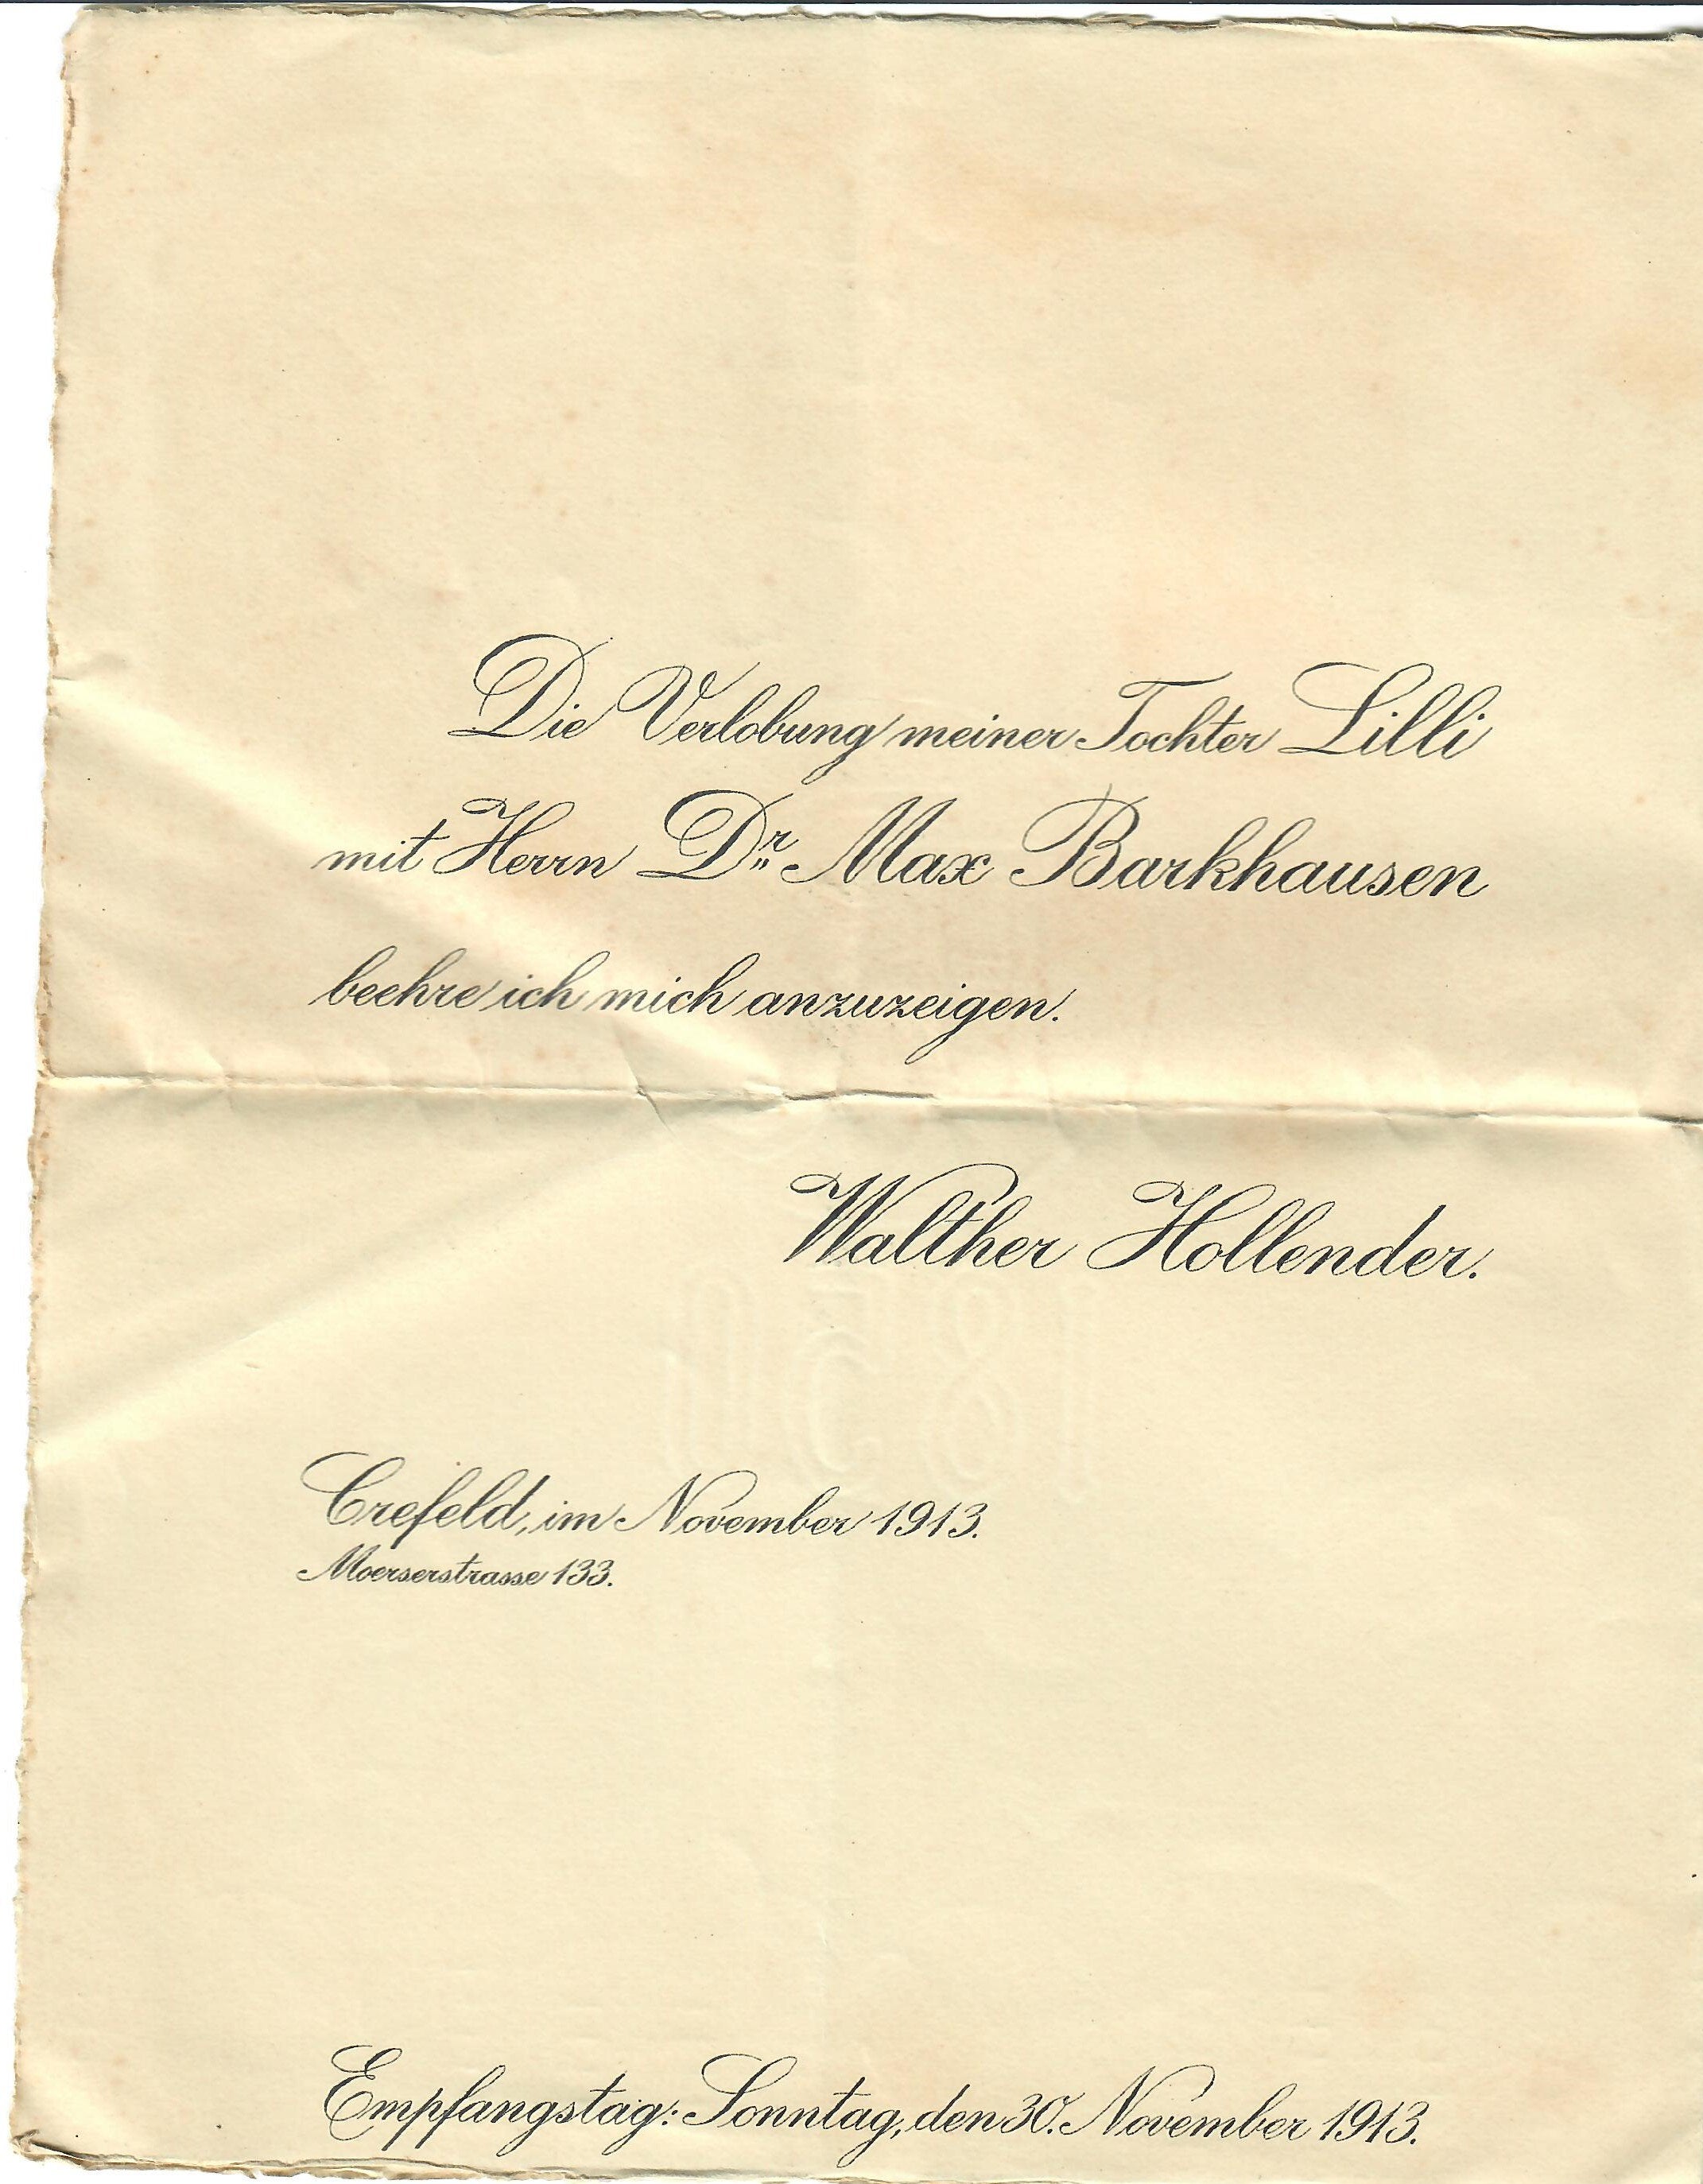 Die Verlobung meiner Tochter Lilli
mit Herrn Dr. Max Barkhausen
beehre ich mich anzuzeigen.
Walther Hollender.
Crefeld, im November 1913.
Moerserstrasse 133.
Empfangstag: Sonntag, den 30. November 1913.